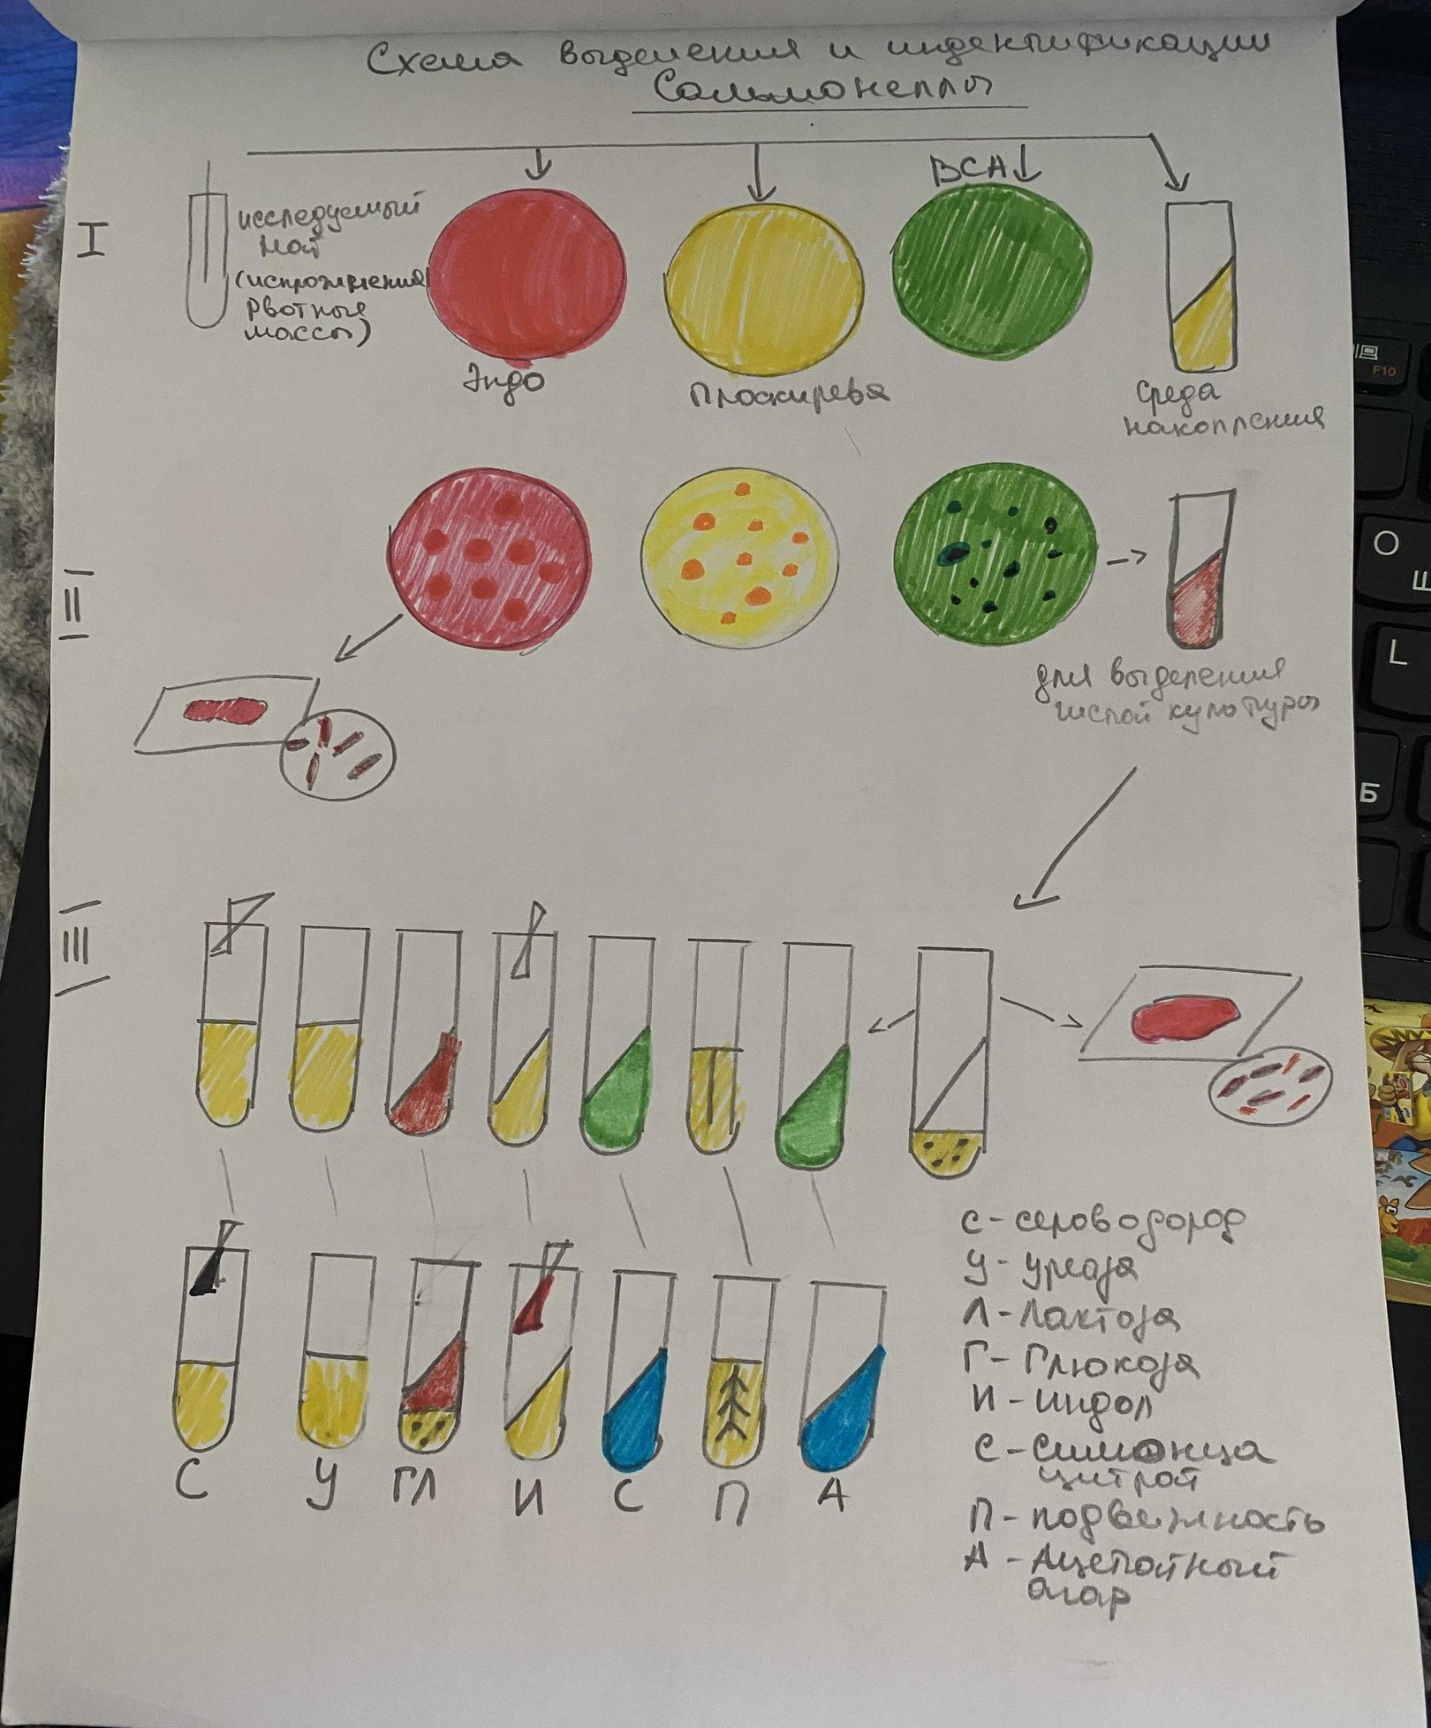 Схема выделения и индентификации
Сальмонеллы
I
исследуемый
мат
(испрожнения
рвотные
массы)
ВСА
Эндо
Плоскирева
Среда
накопления
II
для выделения
чистой культуры
III
С
У
ГЛ
И
С
П
А
С - сероводород
У - Уреаза
Л - Лактоза
Г - Глюкоза
И - индол
С - Симонца
цитрат
П - подвижность
А - Ацетатный
агар
F10
О
Щ
L
Б